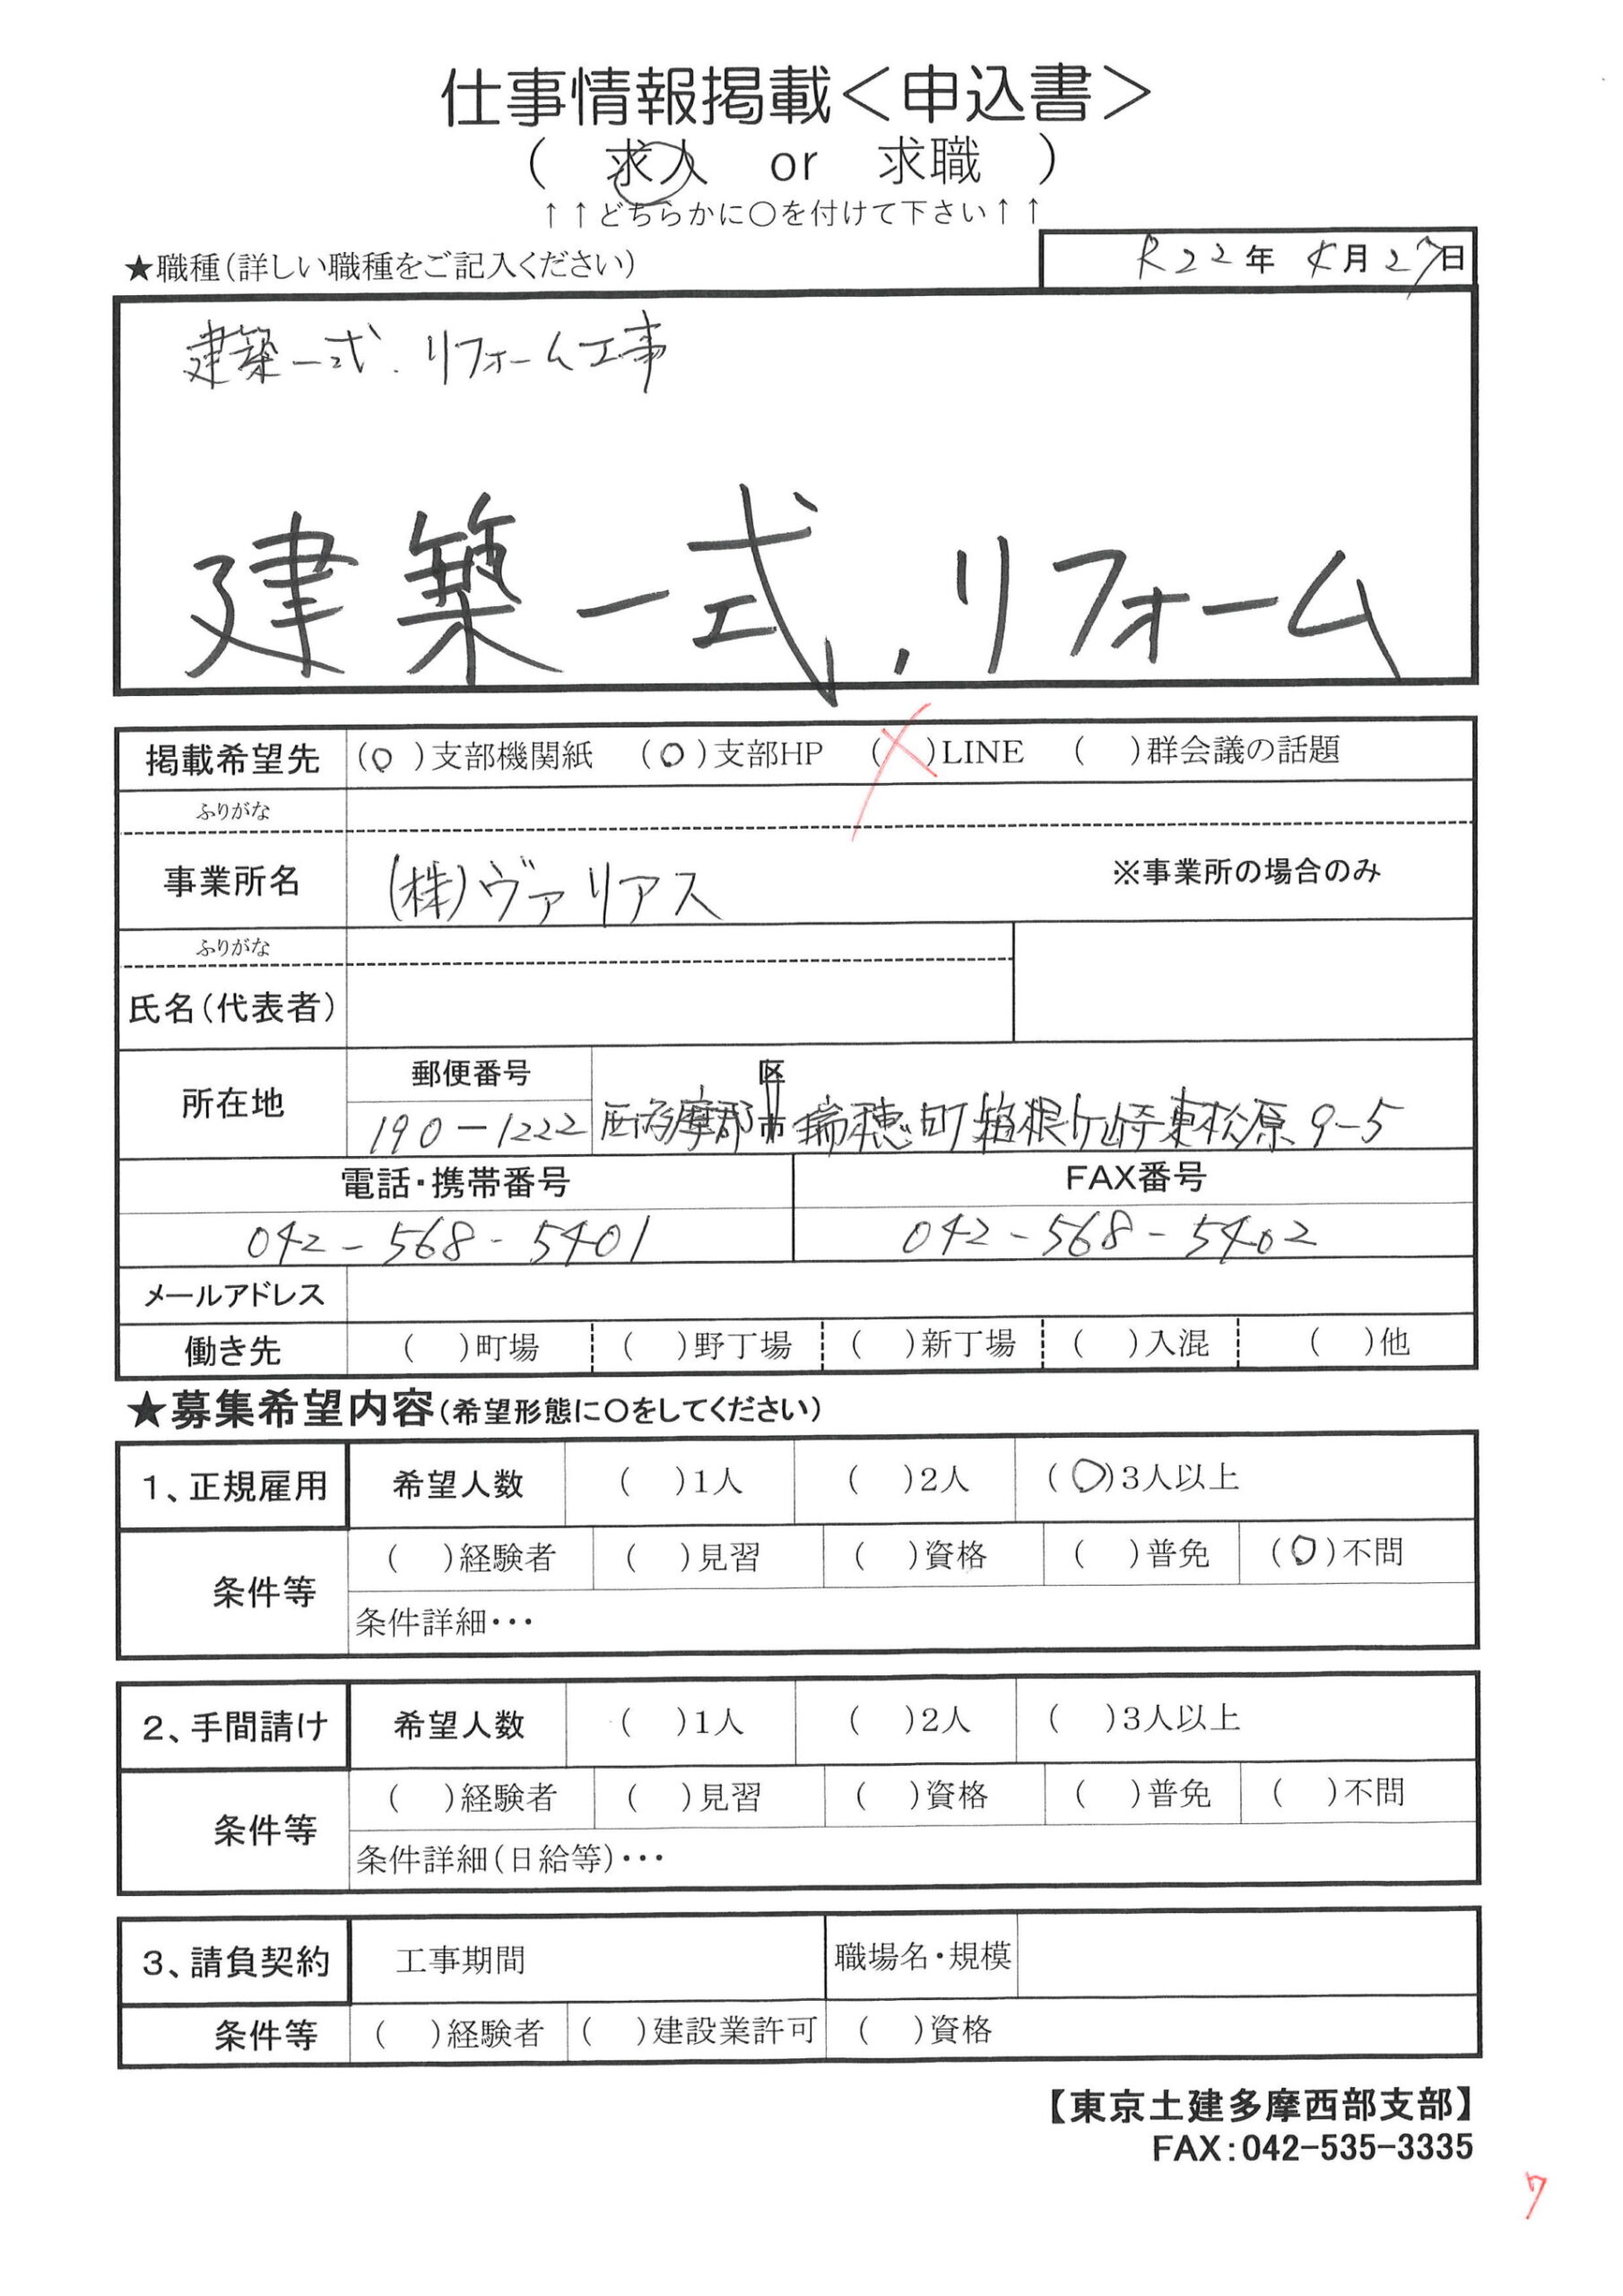 仕事情報掲載＜申込書＞
（ 求人 or 求職 ）
↑↑どちらかに〇を付けて下さい↑↑
★職種（詳しい職種をご記入ください）
R22年 5月27日
建築一式．リフォーム工事
建築一式．リフォーム
掲載希望先 （○）支部機関紙 （○）支部HP （ ）LINE （ ）群会議の話題
ふりがな
事業所名 （株）ヴァリアス ※事業所の場合のみ
ふりがな
氏名（代表者）
所在地 郵便番号 区
190-1222 西多摩郡 市 瑞穂町箱根ケ崎東松原9-5
電話・携帯番号 FAX番号
042-568-5401 042-568-5402
メールアドレス
働き先 （ ）町場 （ ）野丁場 （ ）新丁場 （ ）入混 （ ）他
★募集希望内容（希望形態に〇をしてください）
1、正規雇用 希望人数 （ ）1人 （ ）2人 （○）3人以上
条件等 （ ）経験者 （ ）見習 （ ）資格 （ ）普免 （○）不問
条件詳細・・・
2、手間請け 希望人数 （ ）1人 （ ）2人 （ ）3人以上
条件等 （ ）経験者 （ ）見習 （ ）資格 （ ）普免 （ ）不問
条件詳細（日給等）・・・
3、請負契約 工事期間 職場名・規模
条件等 （ ）経験者 （ ）建設業許可 （ ）資格
【東京土建多摩西部支部】
FAX：042-535-3335
7